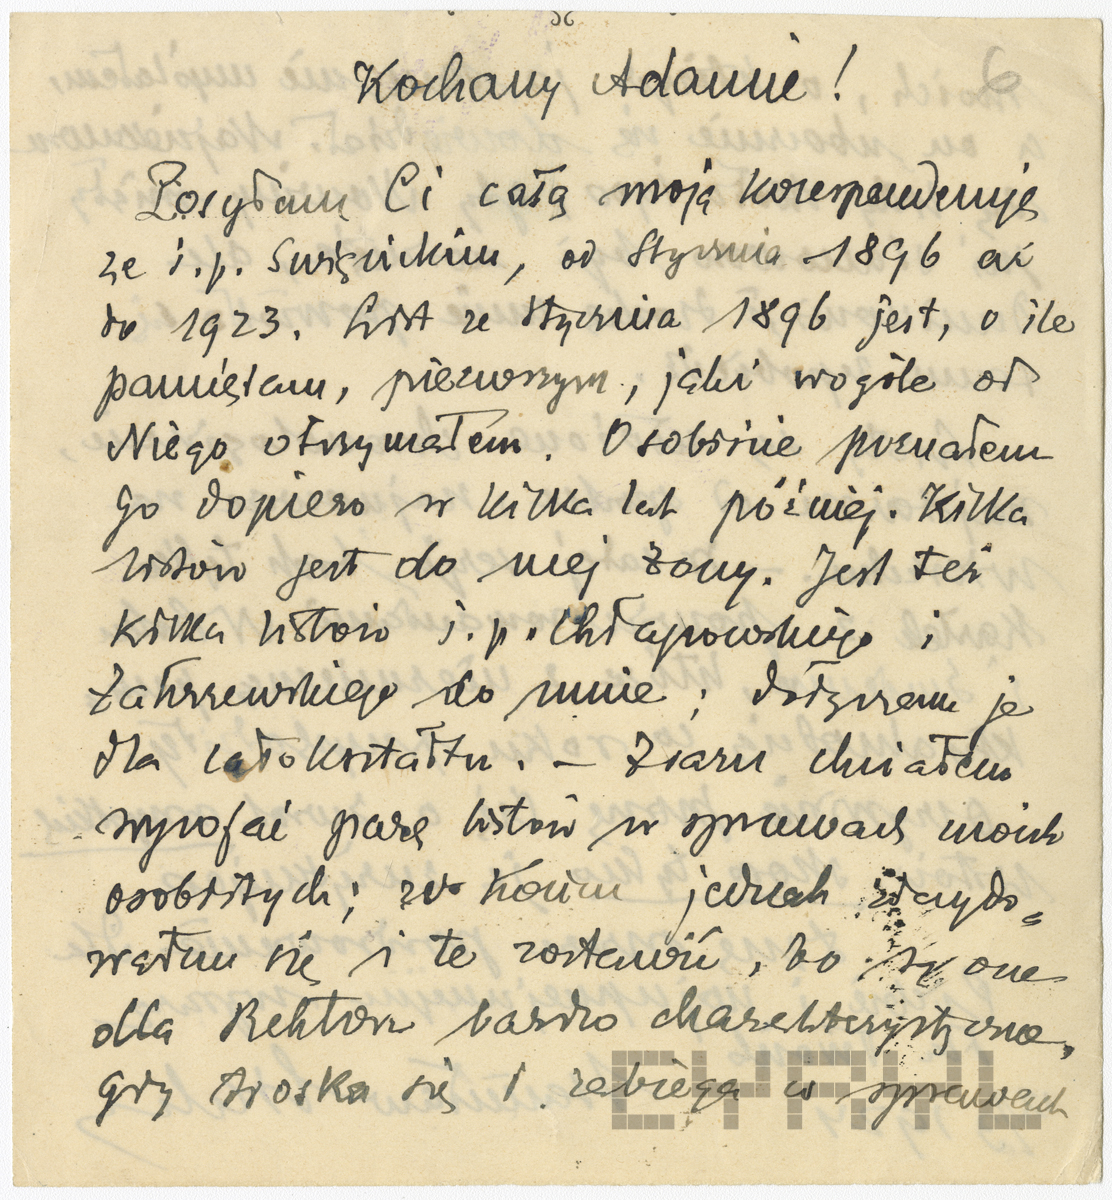 Kochany Adamie!
Posyłam Ci całą moją korespondencję
ze ś. p. Święcickim, od Stycznia 1896 aż
do 1923. List ze stycznia 1896 jest, o ile
pamiętam, pierwszym, jaki wogóle od
Niego otrzymałem. Osobiście poznałem
Go dopiero w kilka lat później. Kilka
listów jest do mej żony. Jest też
kilka listów ś. p. Chłapowskiego i
Zakrzewskiego do mnie; dołączam je
dla całokształtu. – Zrazu chciałem
wycofać parę listów w sprawach moich
osobistych; w końcu jednak zdecydo-
wałem się i te zostawić, bo są one
dla Rektora bardzo charakterystyczne,
gdy troska się i zabiega w sprawach